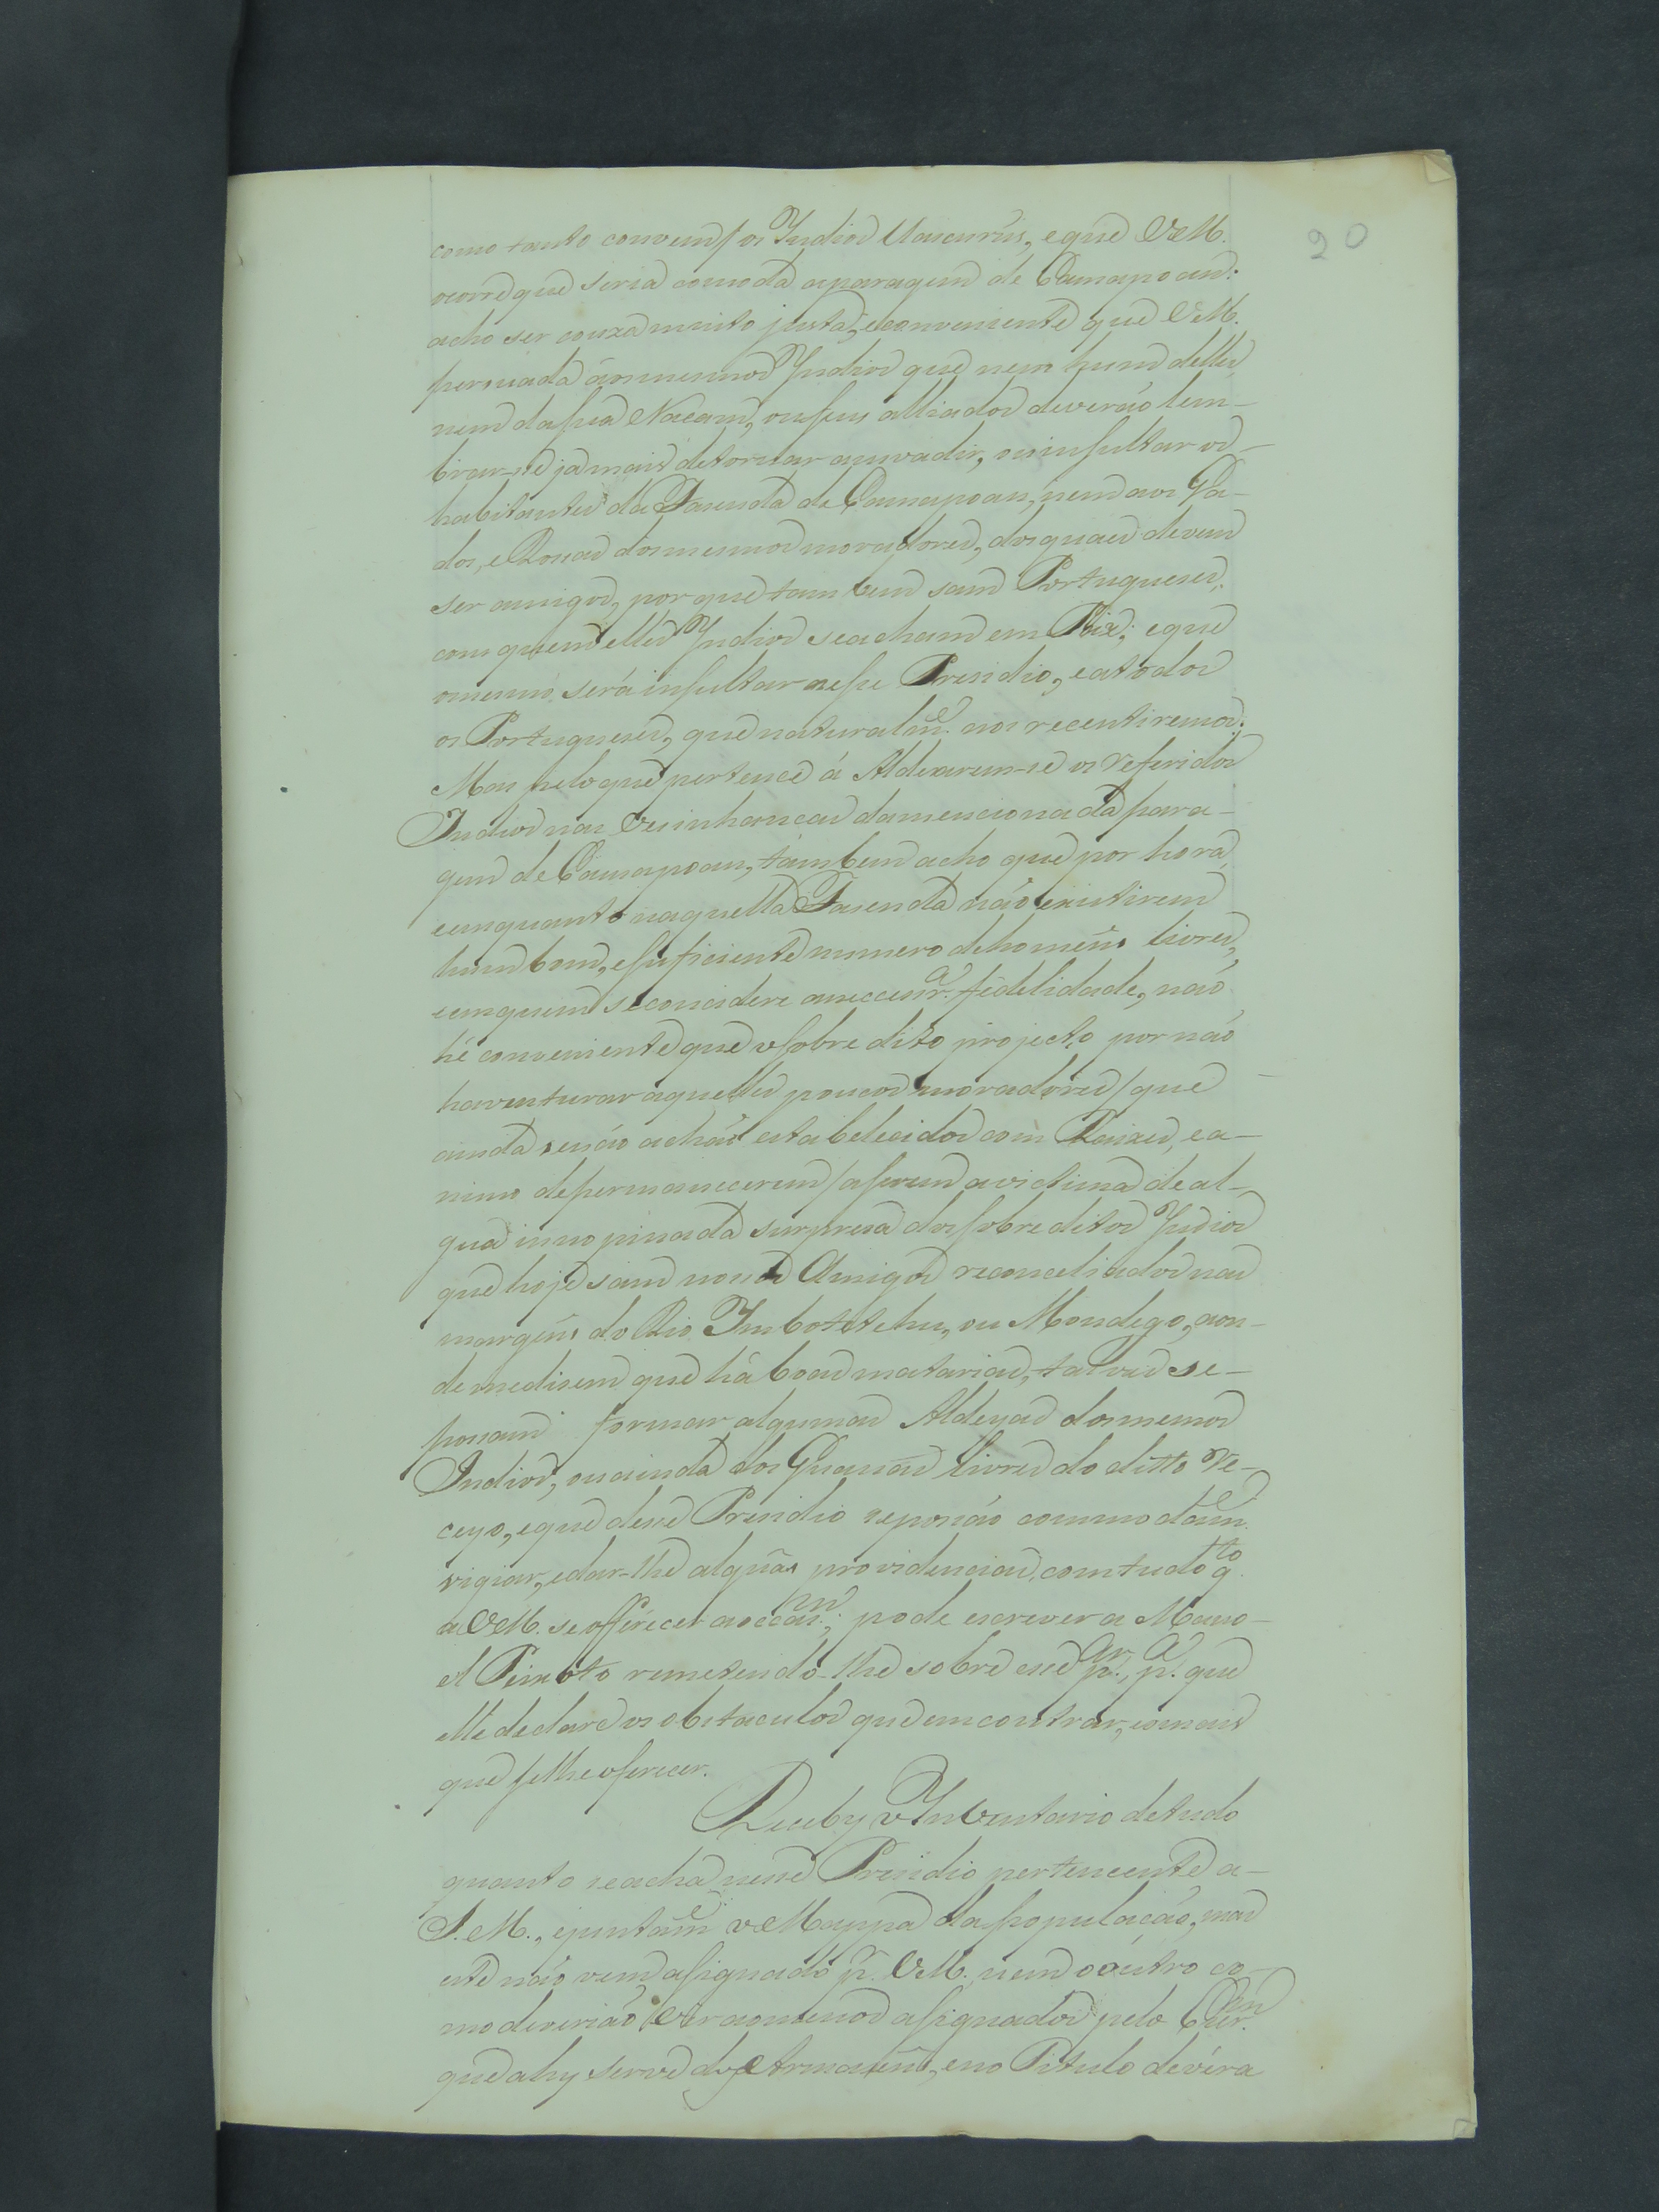 90
como tanto convem / os Indios Uaicurús, e que VM.
ocorre que seria comoda aparagem de Camapoan:
acho ser couza muito justa, e conveniente que VM.
persuada áos mesmos Indios que nem hum delles,
nem da sua Nacam, ou seus alliados deverão lem-
brar-se jámais de tornar a invadir, ou insultar os
habitantes da Fasenda de Camapoan, nem aos Ga-
dos, e Rossas dos mesmos moradores, dos quaes devem
ser amigos, por que tambem sam Portugueses,
com quem elles Indios se acham em Páx; e que
o mesmo será insultar a esse Presidio, e a todos
os Portugueses, que naturalm.e nos recentiremos:
Mas pelo que pertence á Aldearem-se os referidos
Indios nas Vesinhancas da mencionada para-
gem de Camapoan, tambem acho que por hora,
emquanto naquella Fasenda não existirem
hum bom, e suficiente numero de homẽns livres,
em quem se concidere a neccesr.a fidelidade, não
hé conveniente que o sobredito projecto por não
haventurar aquelles poucos moradores / que
ainda se não achão estabelecidos com Raizes, e a-
nimo de permanecerem / a serem a victima de al-
gua innopinada surpresa dos sobreditos Indios
que hoje sam nossos Amigos reconceliados nas
margẽns do Rio Imbotetehu, ou Mondego, aon-
de me disem que há boas matarias, talves se-
possam formar algumas Aldeyas dos mesmos
Indios, ou ainda dos Guanás livres do ditto re-
ceyo, e que desse Presidio se possão commodam.e
vigiar, e dar-lhe algũas providencias, com tudo q.to
a VM. se offerecer a occas.m; pode escrever a Mano-
el Peixoto remetendo-lhe sobre esse p.ar, p.a que
elle declare os obstaculos que encontrar, e o mais
que se lhe oferecer.
Receby o Inventario de tudo
quanto se acha nesse Presidio pertencente a-
S. M., e juntam.e o Mappa da população, mas
este não vem assignado p.r VM. nem o outro co-
mo deverião vir ao menos assignados pelo
que ahy serve dos Armazẽns, e no Titulo devéra